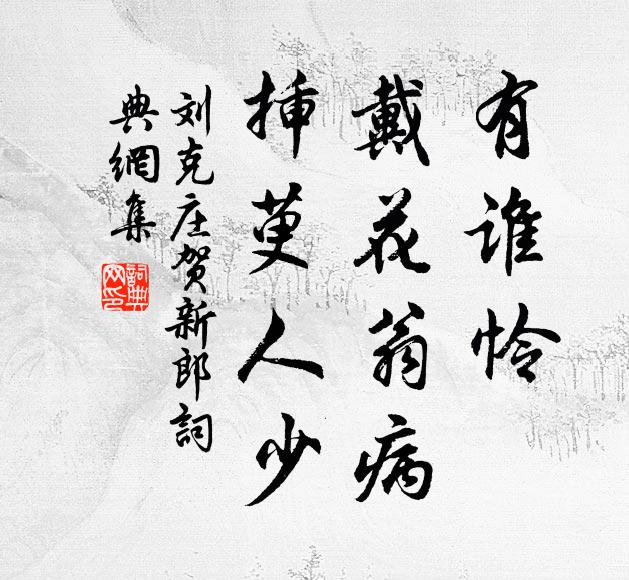 有谁怜
戴花翁病
挿萸人少
刘克庄贺新郎詞
典網集
詞典
网印